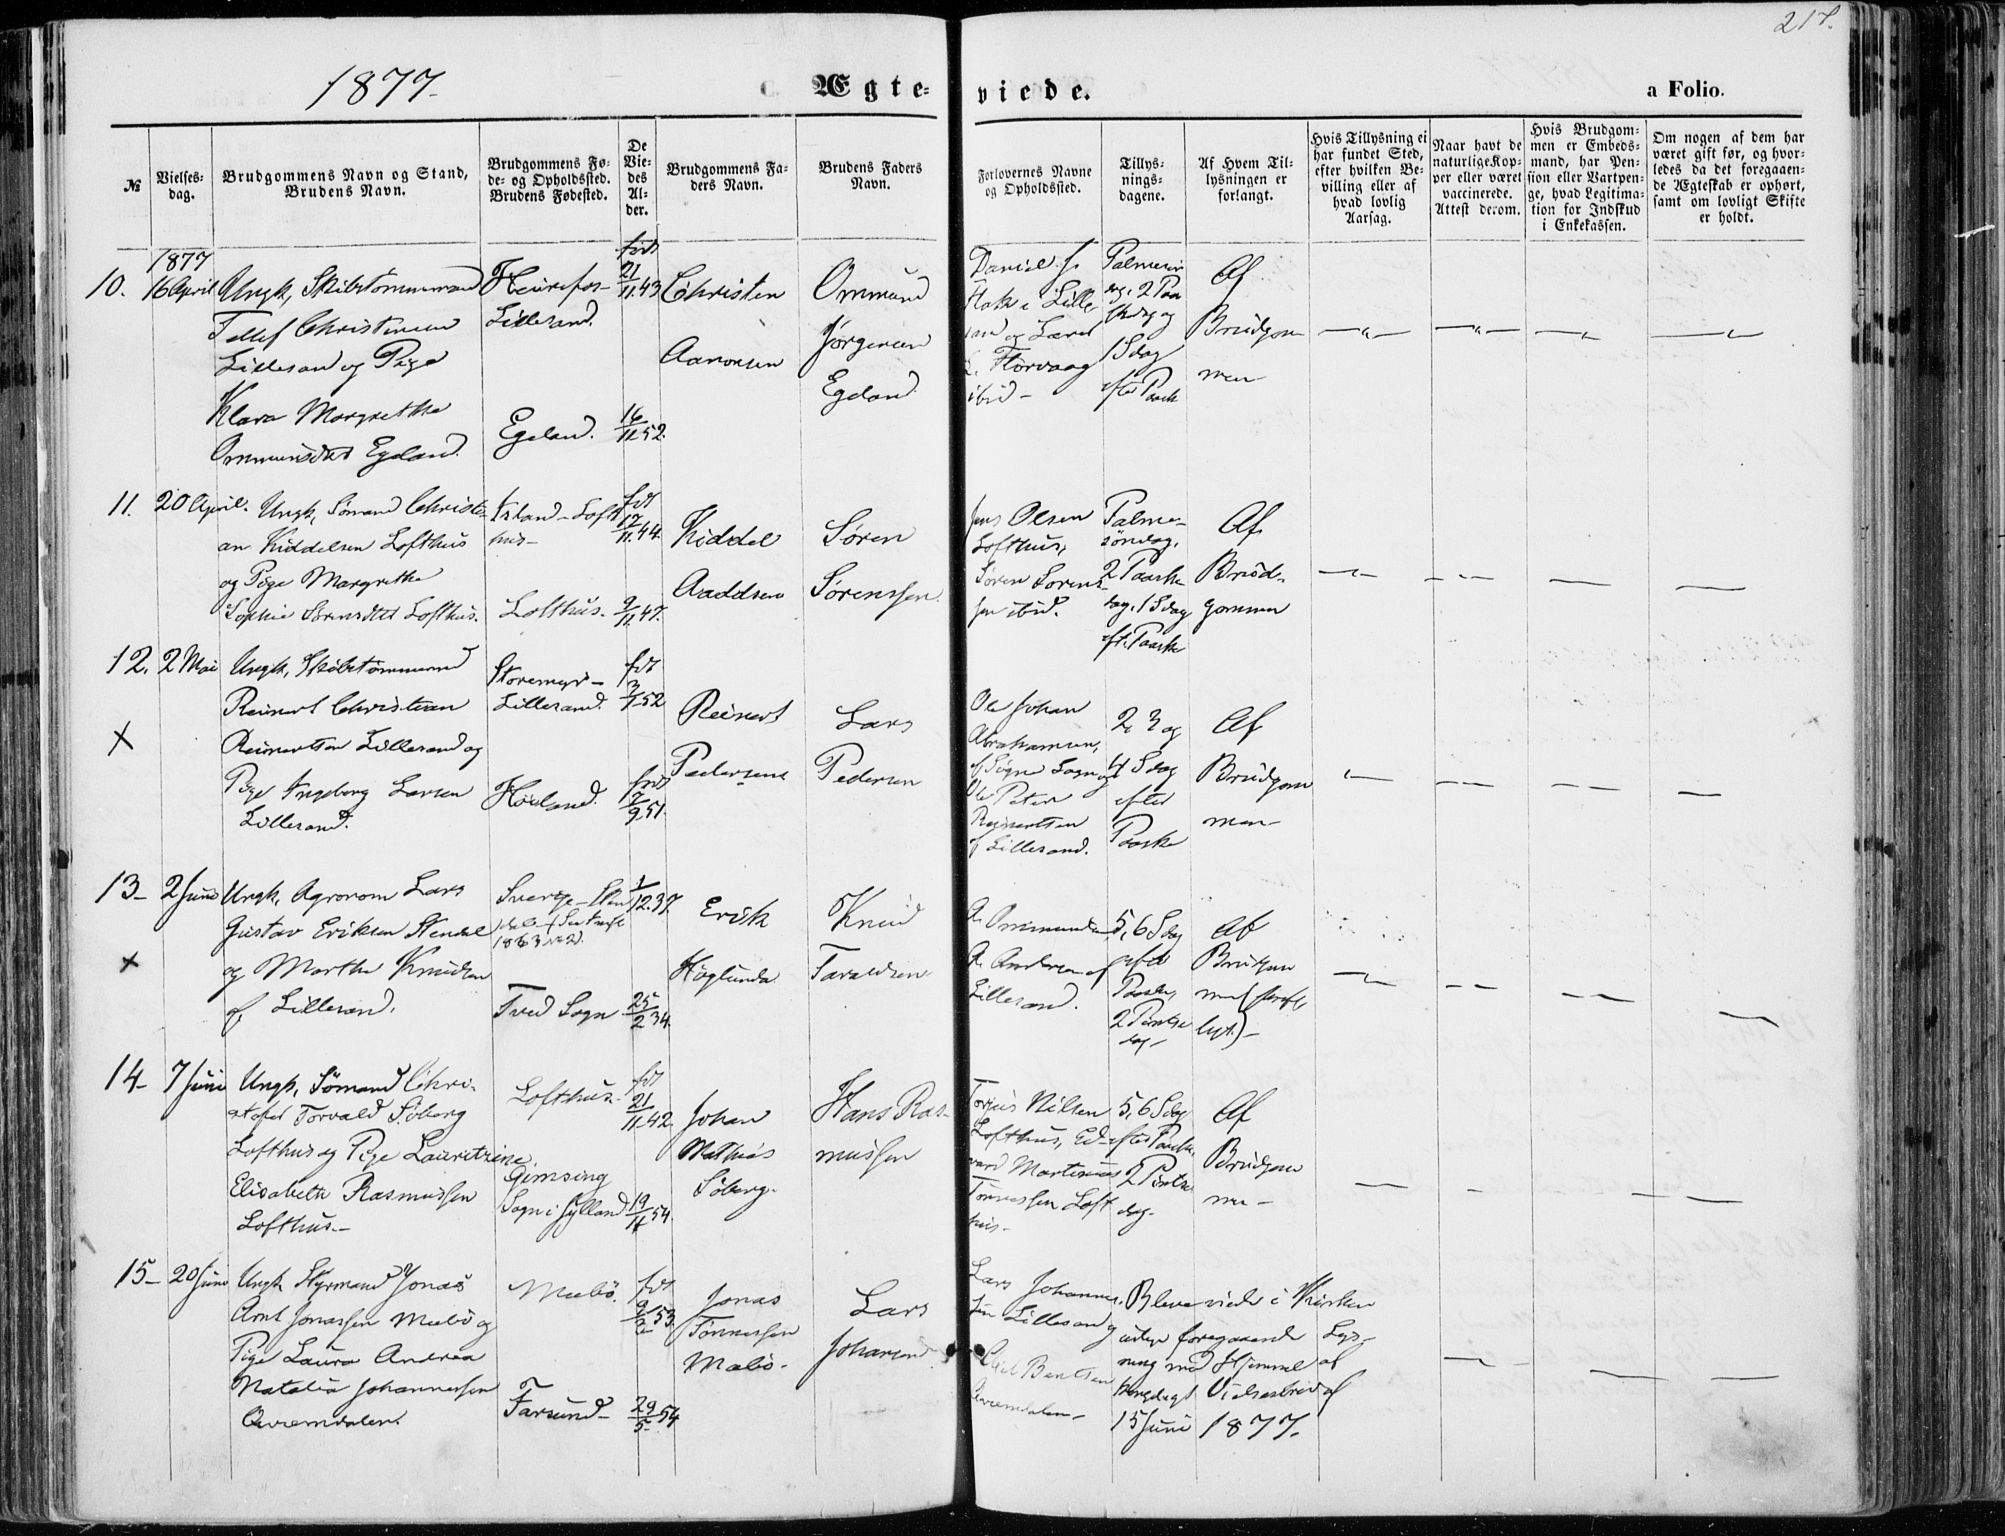 217.
1877.
Ægte-
viede.
a Folio.
№
Vielses-
dag.
Brudgommens Navn og Stand,
Brudens Navn.
Brudgommens Fø-
de- og Opholdssted.
Brudens Fødested.
De
Vie-
des
Al-
der.
Brudgommens Fa-
ders Navn.
Brudens Faders
Navn.
Forlovernes Navne
og Opholdssted.
Tillys-
nings-
dagene.
Af Hvem Til-
lysningen er
forlangt.
Hvis Tillysning ei
har fundet Sted,
efter hvilken Be-
villing eller af
hvad lovlig
Aarsag.
Naar havt de
naturlige Kop-
per eller været
vaccinerede.
Attest derom.
Hvis Brudgom-
men er Embeds-
mand, har Pen-
sion eller Vartpen-
ge, hvad Legitima-
tion for Indskud
i Enkekassen.
Om nogen af dem har
været gift før, og hvor-
ledes da det foregaaen-
de Ægteskab er ophørt,
samt om lovligt Skifte
er holdt.
1877
10.
16 April
Ungk, Skibstømmermand
Tellef Christensen
Lillesand og Pige
Klara Margrethe
Ommundsdtr Egeland
Lillesand.
Egeland.
fdt
21/11.43
16/11.52.
Christen
Aaronsen
Ommund
Jørgensen
Egeland
Daniel
i Lille
sand og
ibid -
Palmesøn
dag, 2 Paa
skedag og
1 Sdag
efter Paask
Af
Brudgom
men
11.
20 April.
Ungk, Sømand Christi-
an Kiddelsen Lofthus
og Pige Margrethe
Sophie Sørensdtr Lofthus.
Lofthus.
fdt
17/11.44.
9/11.47.
Kiddel
Aaddsen
Søren
Sørenssen
Jens Olsen
Lofthus,
Søren Sørens-
sen ibid.
Palme-
søndag,
2 Paaske
dag, 1 Sdag
eft. Paaske
Af
Brud-
gommen
12.
2 Mai
Ungk, Skibstømmermand
Reinert Christian
Reinertsen Lillesand og
Pige Ingeborg Larsen
Lillesand.
Storemyr -
Lillesand.
Høeland.
fdt
3/7.52
fdt
7/9.51.
Reinert
Pedersen
Lars
Pedersen
Ole Johan
Abrahamsen,
af Søgne Sogn og
Ole Peter
Reinertsen
af Lillesand.
2, 3 og
4 Sdag
efter
Paaske
Af
Brudgom
men
13
2 Juni
Ungk, Agronom Lars
Gustav Eriksen Stendal
og Marthe Knudsen
af Lillesand.
Sverige - Sten
1863
Tved Sogn
1/12.37.
25/2 34.
Erik
Høglunda
Knud
Taraldsen
A. Ommundsen
A. Andersen af
Lillesand.
5, 6 Sdag
efter
Paaske,
2 Pintse
dag
Af
Brudgom
men (skrift
ligt.)
14
7 Juni
Ungk, Sømand Chri-
stofer Torvald Søberg
Lofthus og Pige Lauritzine
Elisabeth Rasmussen
Lofthus.-
Lofthus.
Gimsing
Sogn i Jylland
fdt
21/11.42.
19/11 54.
Johan
Mathias
Søberg.
Hans Ras-
mussen
Torjus Nilsen
Lofthus, Ed-
vard Martinius
Tønnessen Loft
hus -
5, 6 Sdag
efter Paaske
2 Pintse
dag.
Af
Brudgom
men -
15
20 Juni
Ungk Styrmand Jonas
Arnt Jonassen Mebø og
Pige Laura Andrea
Natalia Johannessen
Qvremdalen.
Mebø.
Farsund
fdt
9/2 53.
29/5 54
Jonas
Tønnessen
Mebø.
Lars
Johansen
Lars Johannes-
sen Lillesand og
Bentsen
Bleve viede i Kirken
uden foregaaende Lys-
ning med Hjemmel af
kongeligt Vielsesbrev af
15 Juni 1877.